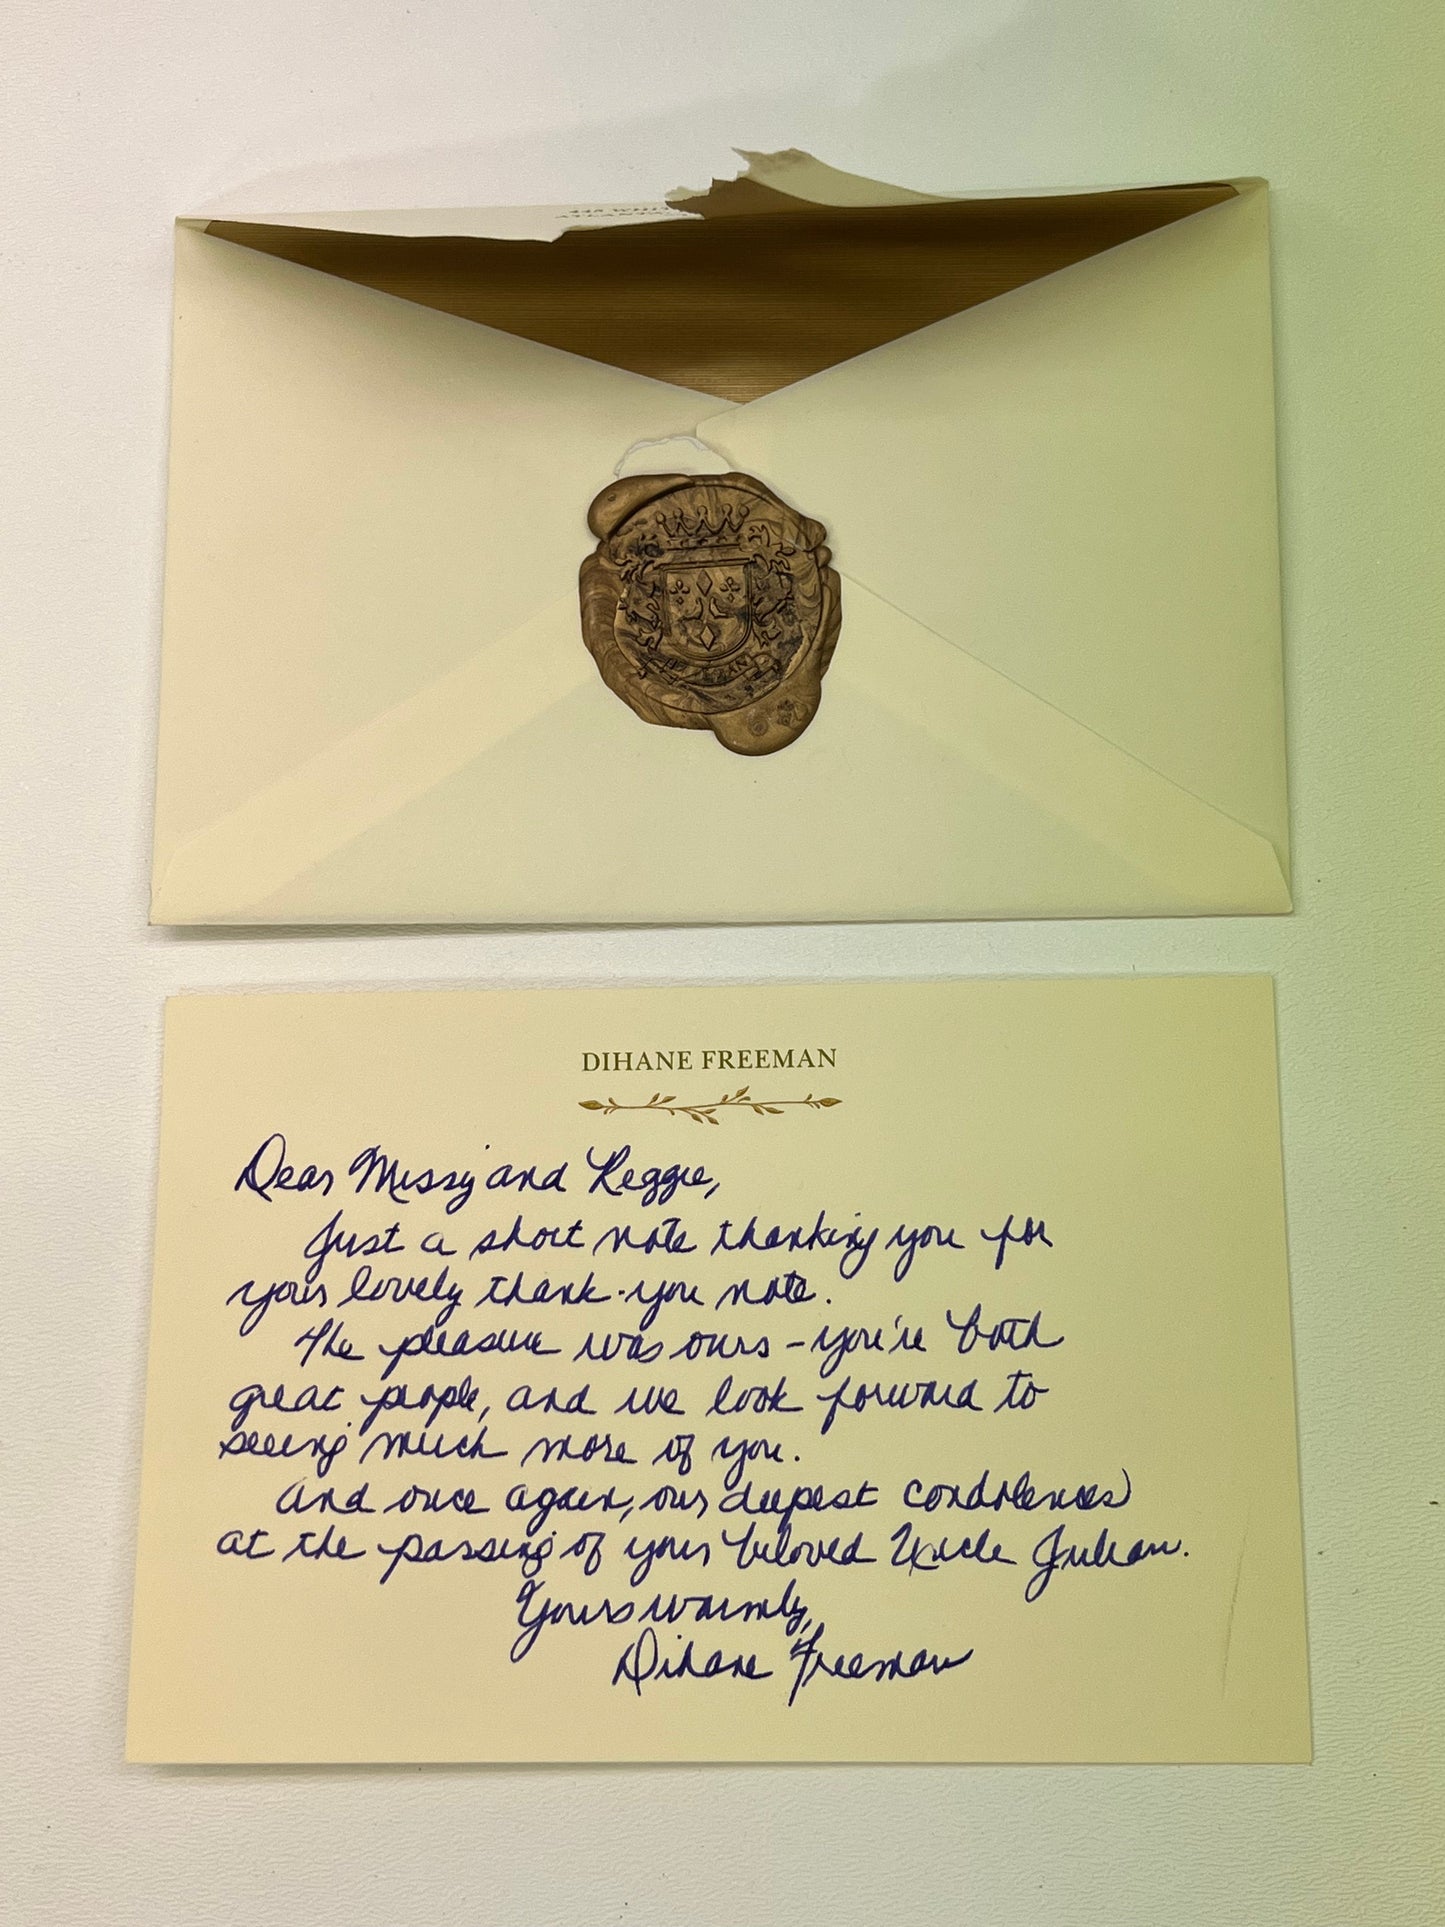 ATLANTA
DIHANE FREEMAN
Dear Missy and Reggie,
Just a short note thanking you for
your lovely thank-you note.
The pleasure was ours - you're both
great people, and we look forward to
seeing much more of you.
And once again, our deepest condolences
at the passing of your beloved Uncle Julian.
Yours warmly,
Dihane Freeman